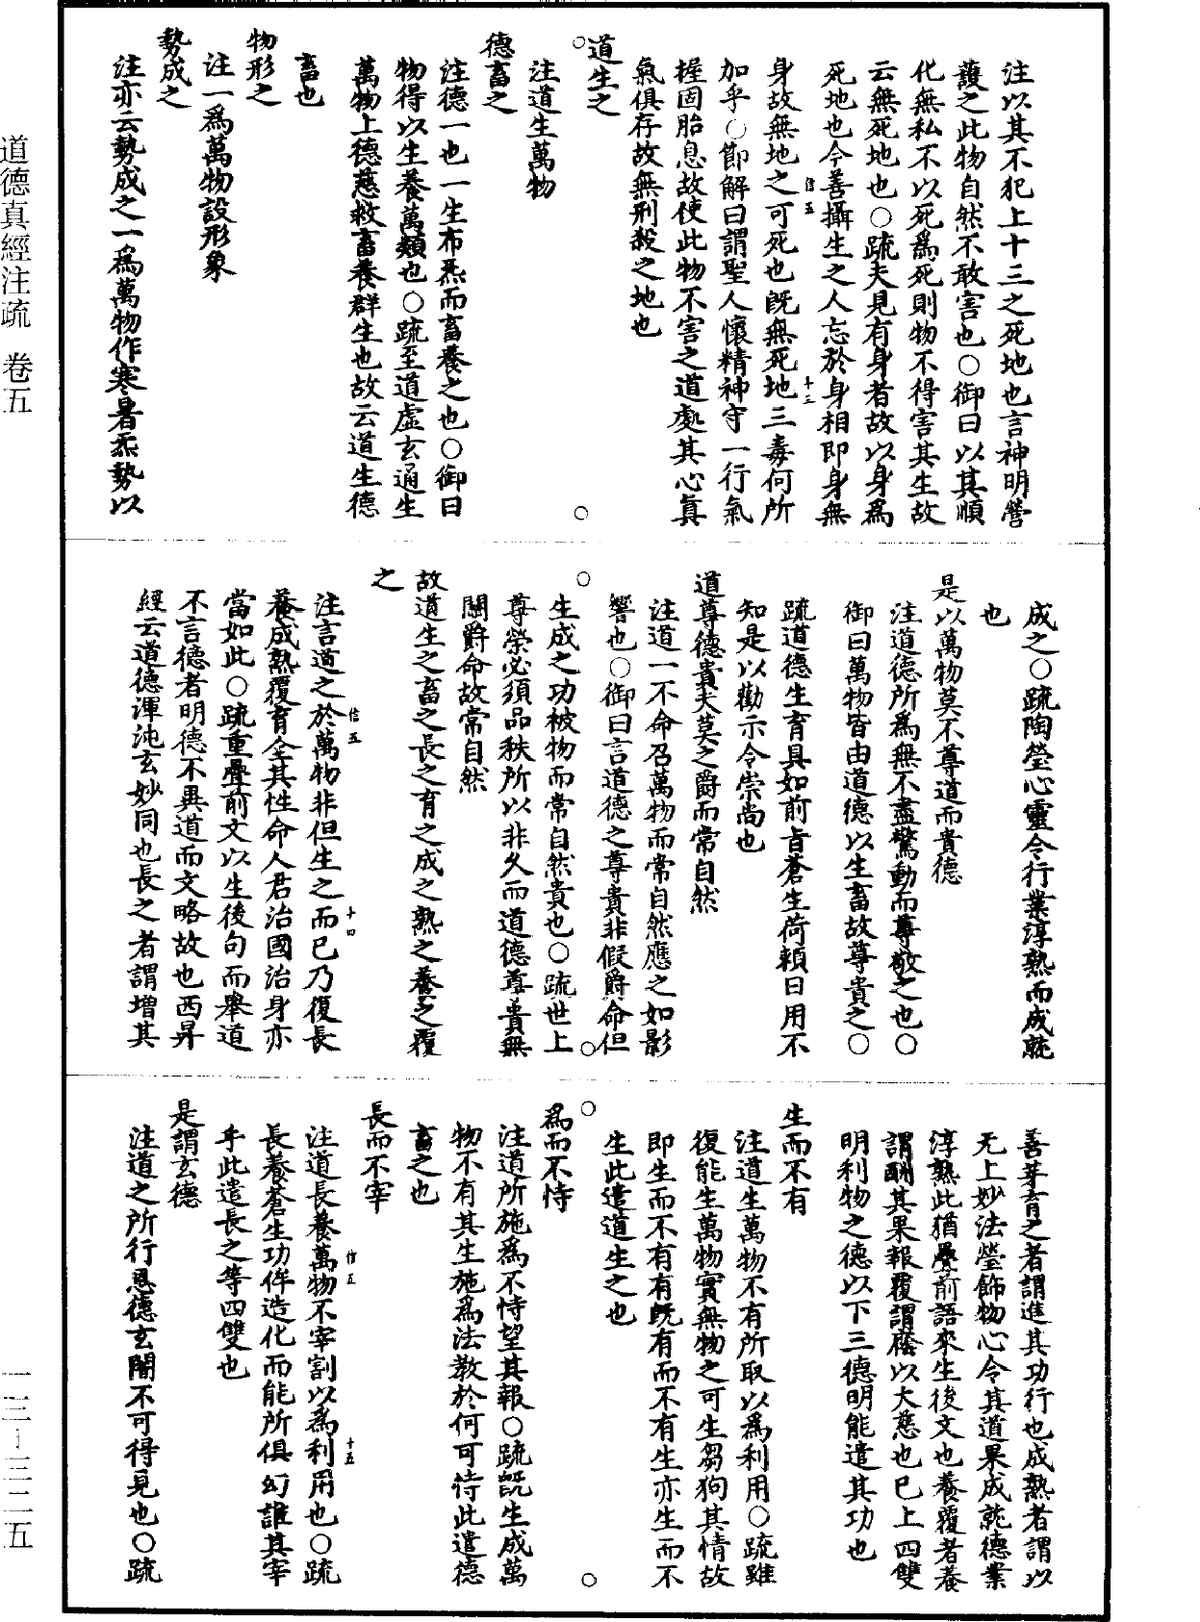 道德真經注疏　卷五
注以其不犯上十三之死地也言神明營
護之此物自然不敢害也○御曰以其順
化無私不以死爲死則物不得害其生故
云無死地也○疏夫見有身者故以身爲
死地也今善攝生之人忘於身相即身無
身故無地之可死也旣無死地三毒何所
加乎○節解曰謂聖人懷精神守一行氣
握固胎息故使此物不害之道處其心眞
氣俱存故無刑殺之地也
道生之
注道生萬物
德畜之
注德一也一生布炁而畜養之也○御曰
物得以生養萬類也○疏至道虛玄通生
萬物上德慈救畜養群生也故云道生德
畜也
物形之
注一爲萬物設形象
勢成之
注亦云勢成之一爲萬物作寒暑炁勢以
信五
十三
成之○疏陶瑩心靈令行業淳熟而成就
也
是以萬物莫不尊道而貴德
注道德所爲無不盡驚動而尊敬之也○
御曰萬物皆由道德以生畜故尊貴之○
疏道德生育具如前旨蒼生荷賴日用不
知是以勸示令崇尚也
道尊德貴夫莫之爵而常自然
注道一不命召萬物而常自然應之如影
響也○御曰言道德之尊貴非假爵命但
生成之功被物而常自然貴也○疏世上
尊榮必須品秩所以非久而道德尊貴無
關爵命故常自然
故道生之畜之長之育之成之熟之養之覆
之
注言道之於萬物非但生之而已乃復長
養成熟覆育全其性命人君治國治身亦
當如此○疏重疊前文以生後句而舉道
不言德者明德不異道而文略故也西昇
經云道德渾沌玄妙同也長之者謂增其
信五
十四
善芽育之者謂進其功行也成熟者謂以
无上妙法瑩飾物心令其道果成就德業
淳熟此猶疊前語來生後文也養覆者養
謂酬其果報覆謂廕以大慈也已上四雙
明利物之德以下三德明能遣其功也
生而不有
注道生萬物不有所取以爲利用○疏雖
復能生萬物實無物之可生芻狗其情故
即生而不有有旣有而不有生亦生而不
生此遣道生之也
爲而不恃
注道所施爲不恃望其報○疏旣生成萬
物不有其生施爲法教於何可恃此遣德
畜之也
長而不宰
注道長養萬物不宰割以爲利用也○疏
長養蒼生功侔造化而能所俱幻誰其宰
乎此遣長之等四雙也
是謂玄德
注道之所行恩德玄闇不可得見也○疏
信五
十五
一三—三二五